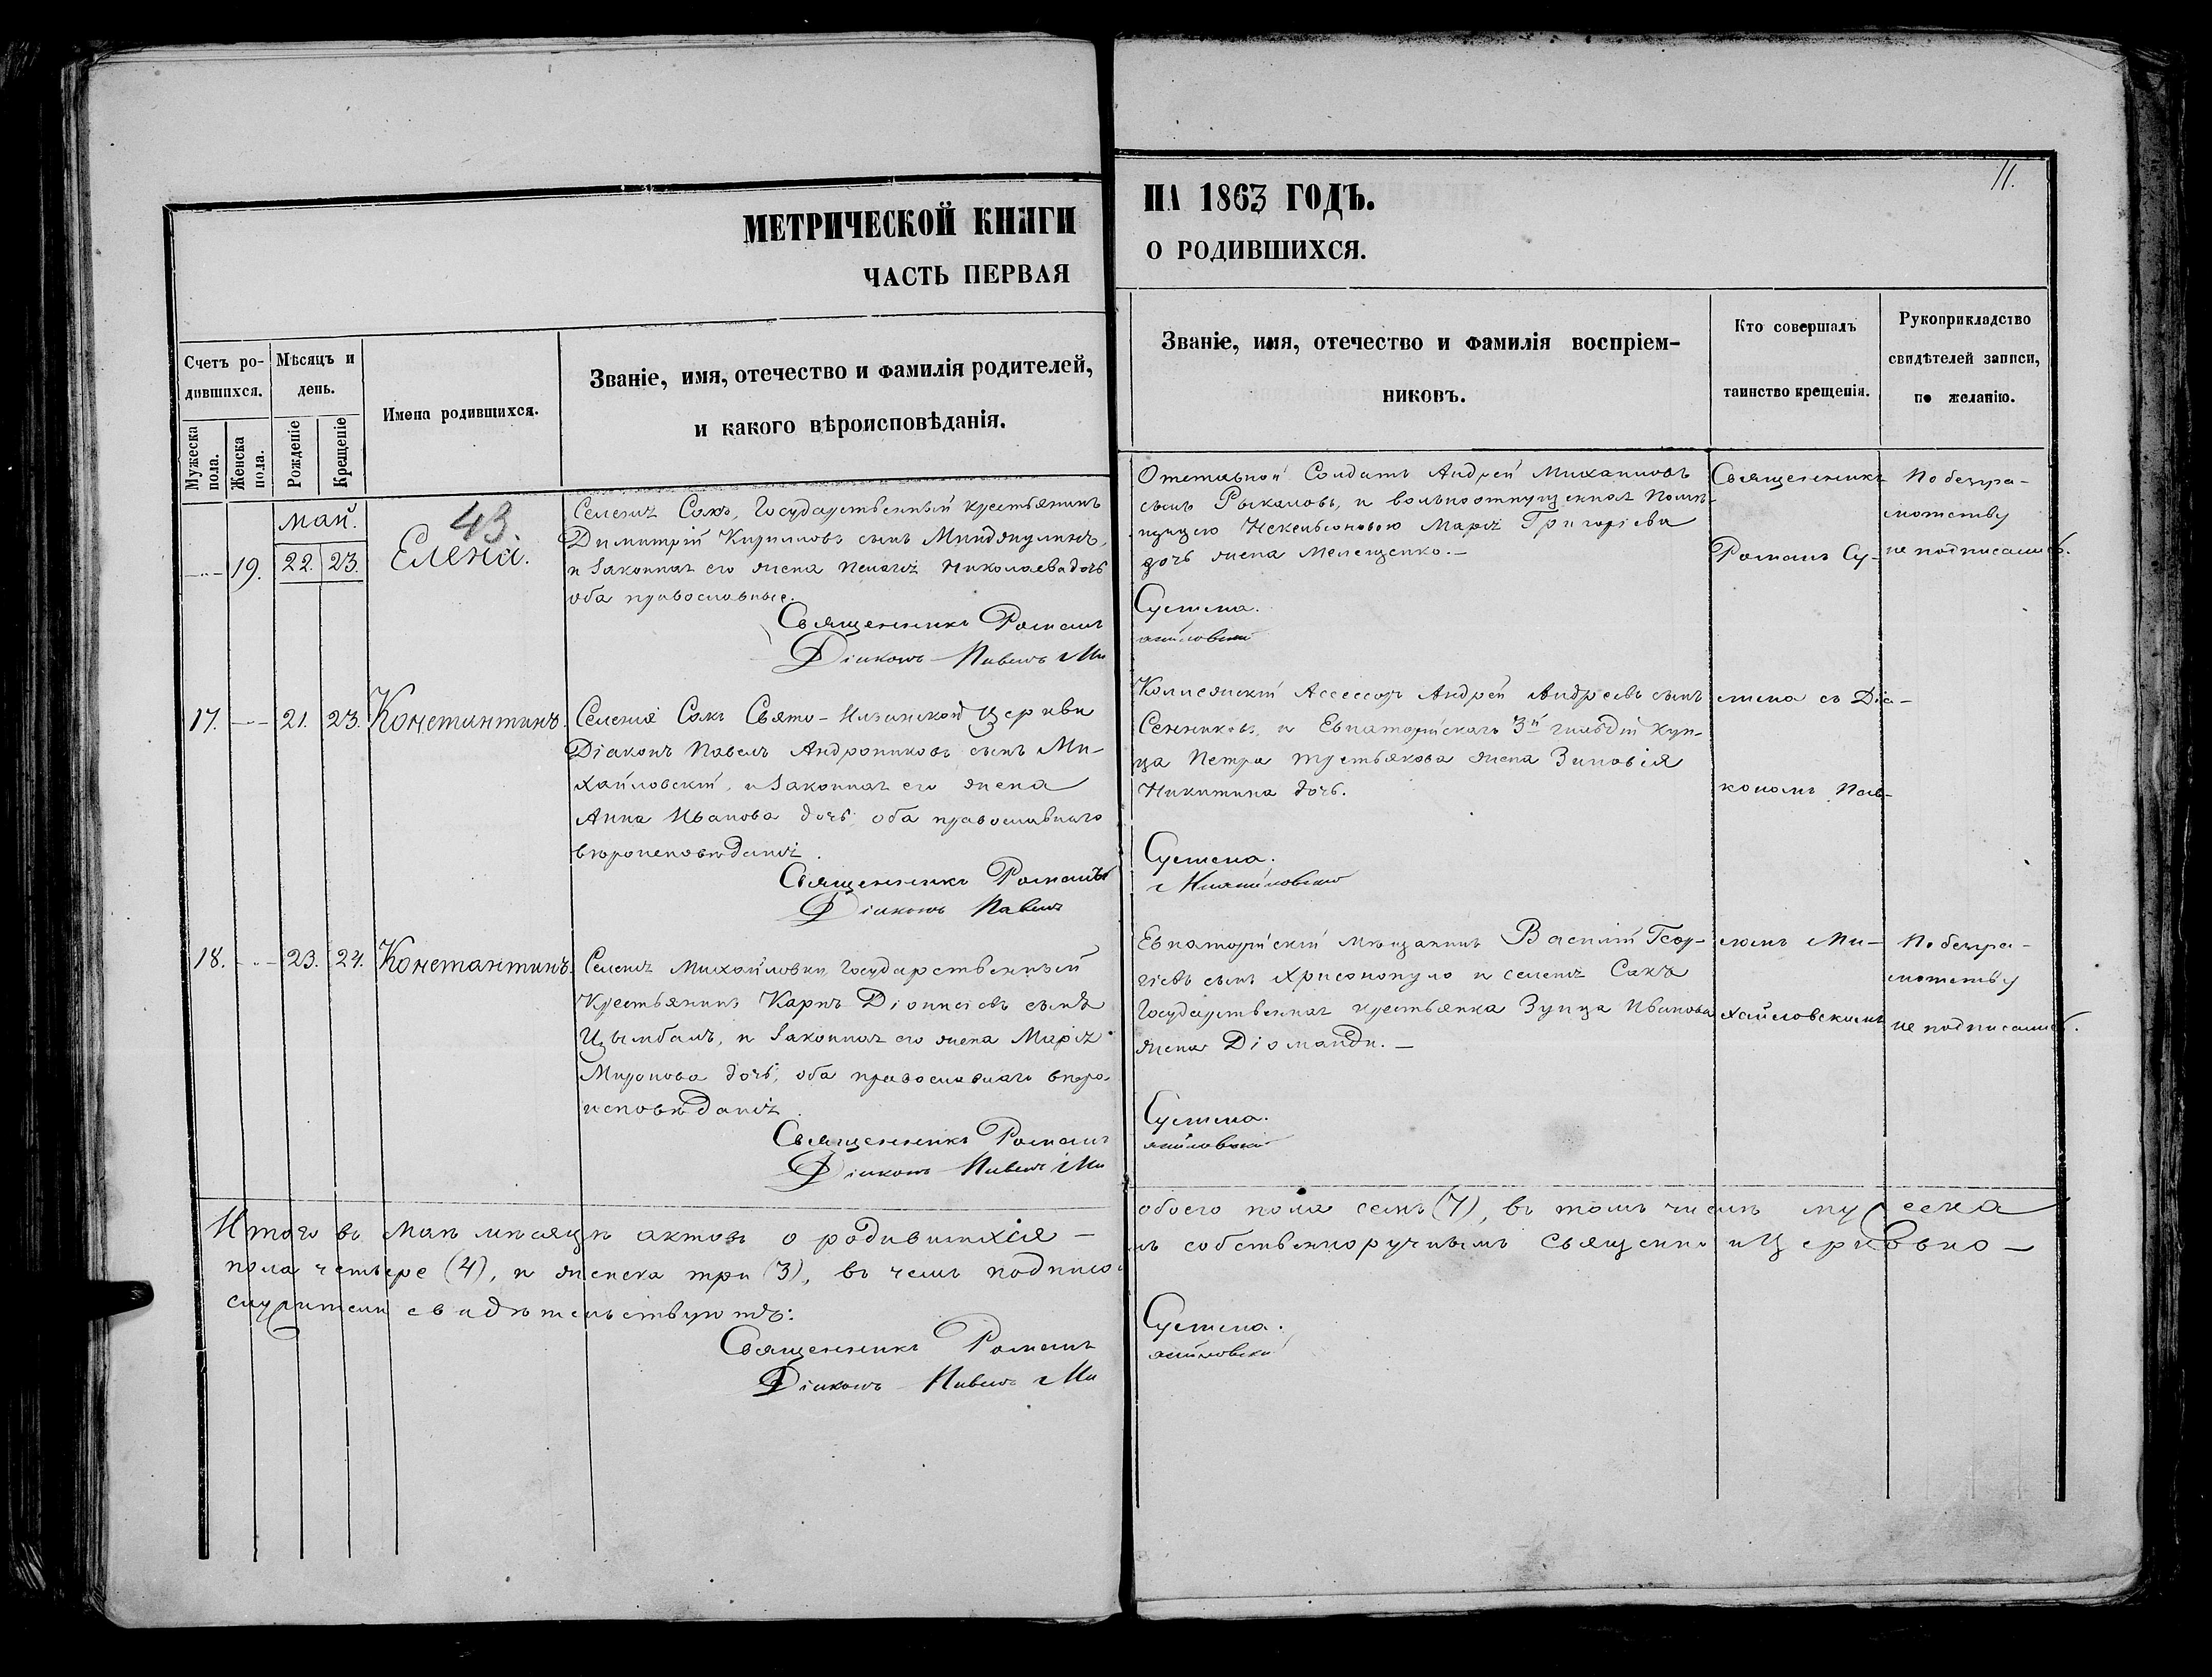 МЕТРИЧЕСКОЙ КНИГИ
ЧАСТЬ ПЕРВАЯ
Счетъ ро-
дившихся.
Мужеска пола.
Женска пола.
Мѣсяцъ и
день.
Рожденіе
Крещеніе
Имена родившихся.
Званіе, имя, отчество и фамилія родителей,
и какого вѣроисповѣданія.
43.
Май.
19. 22. 23. Елена.
Селенія Сакъ, Государственный крестьянинъ
Димитрій Кирилловъ сынъ
и законная его жена Пелагія Николаева дочь
оба православные.
Священникъ Романъ
Діаконъ Павелъ Ми
17. 21. 23. Константинъ.
Селенія Сакъ Свято-Ильинской Церкви
Діаконъ Павелъ Андрониковъ сынъ Ми-
хайловскій, и законная его жена
Анна Иванова дочь, оба православнаго
вѣроисповѣданія.
Священникъ Романъ
Діаконъ Павелъ
18. 23. 24. Константинъ.
Селенія Михайловки Государственный
Крестьянинъ Карпъ Діонисіевъ сынъ
Цымбалъ, и законная его жена Марія
Миронова дочь, оба православнаго вѣро-
исповѣданія.
Священникъ Романъ
Діаконъ Павелъ Ми
Итого въ Маѣ мѣсяцѣ актовъ о родившихся
пола четыре (4), и женска три (3), въ чемъ подписо
служители свидѣтельствуютъ:
Священникъ Романъ
Діаконъ Павелъ Ми
11.
НА 1863 ГОДЪ.
О РОДИВШИХСЯ.
Званіе, имя, отчество и фамилія воспріем-
никовъ.
Кто совершалъ
таинство крещенія.
Рукоприкладство
свидѣтелей записи,
по желанію.
Отставной Солдатъ Андрей Михайловъ
сынъ и вольноотпущенная Помѣ-
щицею Марія Григоріева
дочь жена Мелещенко.
Сустена.
хайловскій
Священникъ
Романъ Су-
По безгра-
мотству
не подписались.
Колежскій Ассессоръ Андрей Андреевъ сынъ
Сенниковъ, и Евпаторійскаго 3й гильдіи Куп-
ца Петра Третьякова жена Зиновія
Никитина дочь.
Сустена.
Михайловскій
стена съ Діа-
кономъ Пав-
Евпаторійскій мѣщанинъ Василій Геор-
гіевъ сынъ Хрисонопуло и селенія Сакъ
Государственная крестьянка Зуица Иванова
жена Діоманди.
Сустена.
хайловскій
ломъ Ми-
хайловскимъ
По безгра-
мотству
не подписались.
обоего пола семь (7), въ томъ числѣ мужеска
мъ собственноручнымъ Священно и Церковно-
Сустена.
хайловскій